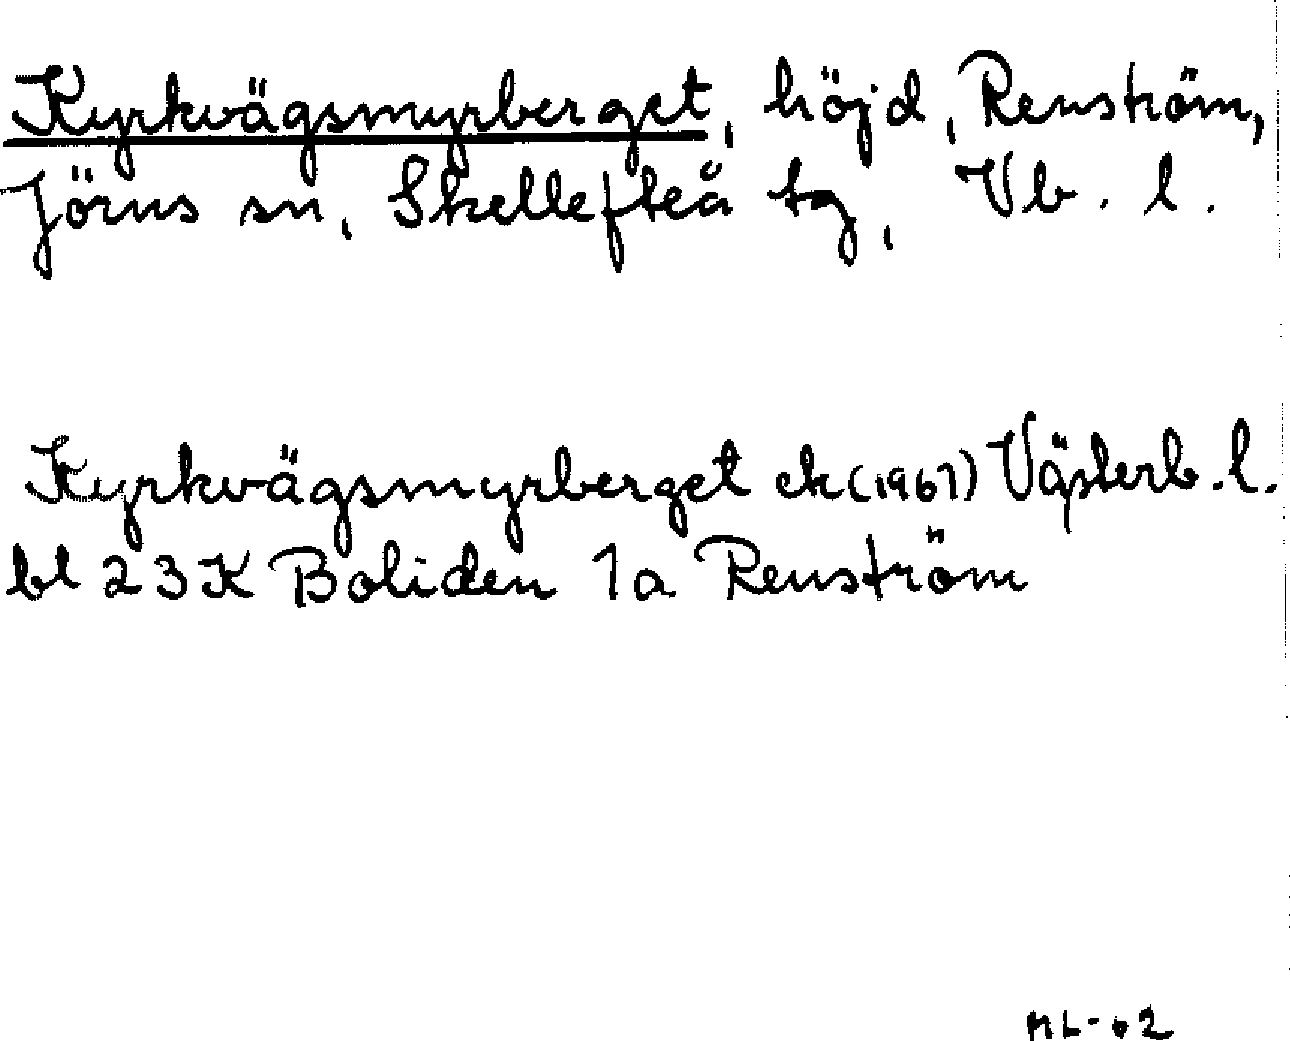 Kyrkvägsmyrberget, höjd, Renström,
Jörns sn, Skellefteå tg, Vb. l.
Kyrkvägsmyrberget ek (1967) Västerb. l.
bl 23K Boliden 1a Renström
ML-02